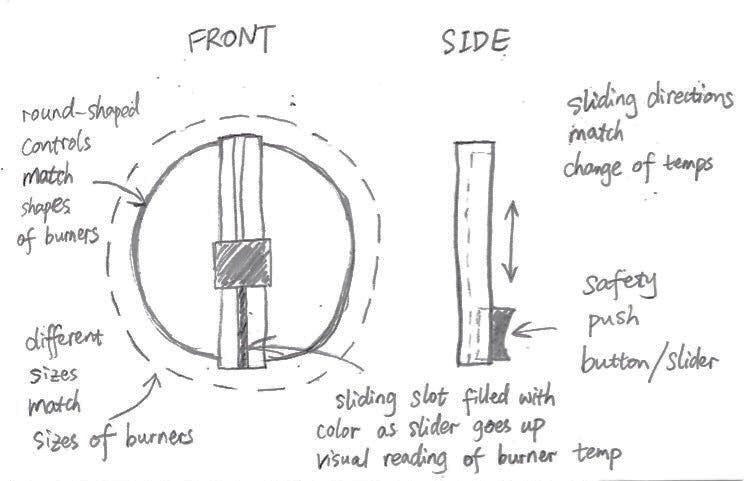 FRONT
SIDE
round-shaped
controls
match
shapes
of burners
sliding directions
match
change of temps
different
sizes
match
sizes of burners
safety
push
button/slider
sliding slot filled with
color as slider goes up
visual reading of burner temp